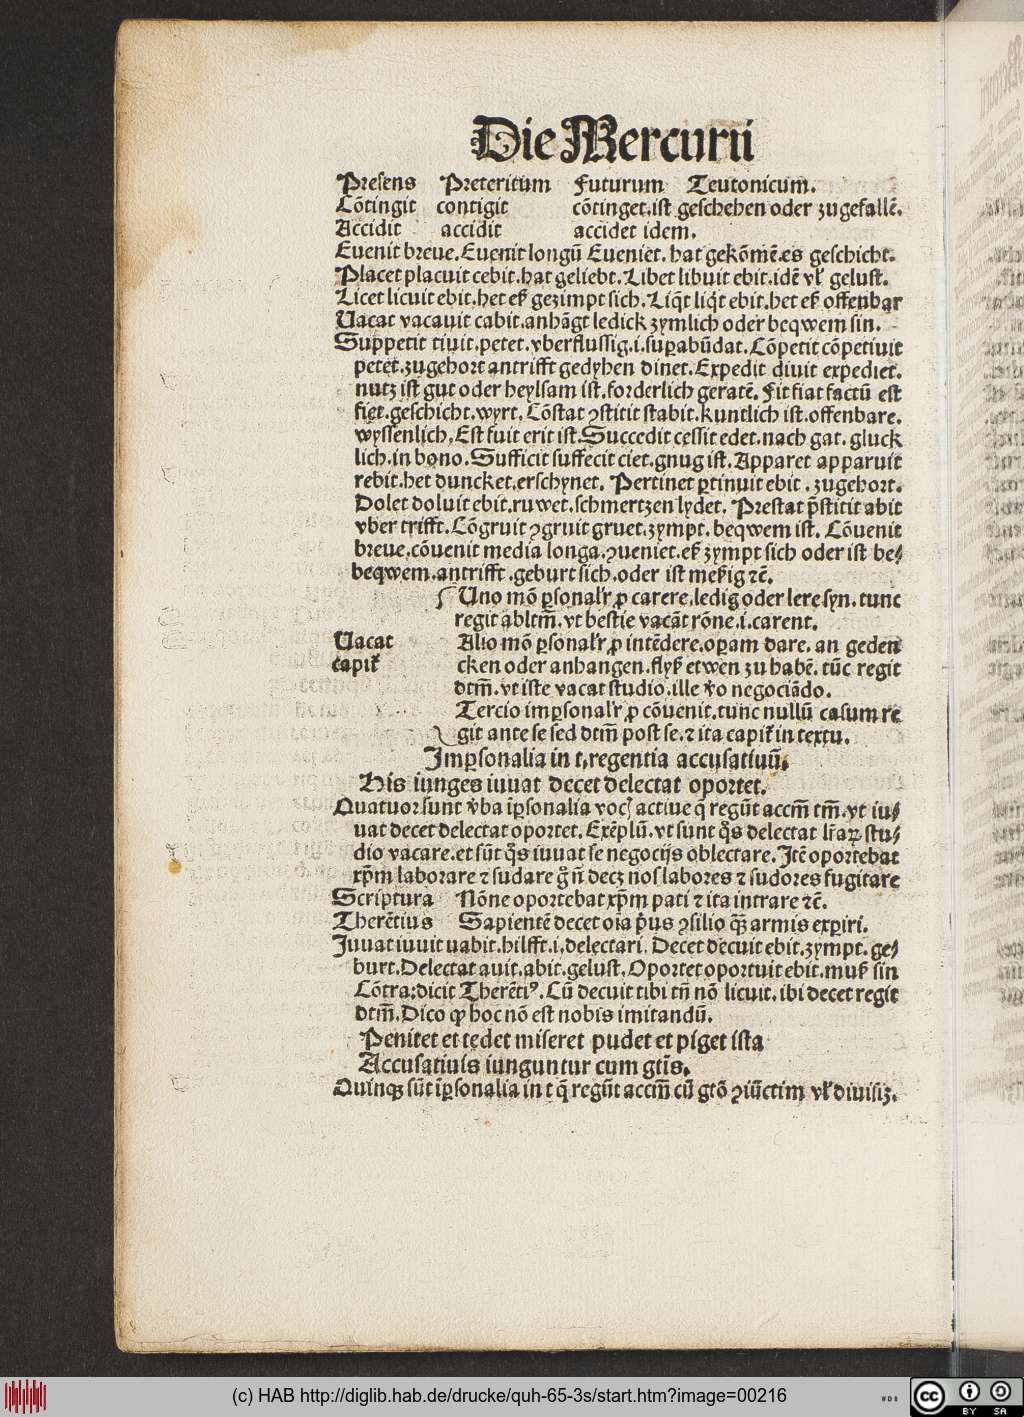 Die Mercurii
Presens Preteritum Futurum Teutonicum.
Cõtingit contigit cõtinget.ist geschehen oder zugefallẽ.
Accidit accidit accidet idem.
Euenit breue.Euenit longũ Eueniet. hat gekõmẽ.es geschicht.
Placet placuit cebit.hat geliebt.Libet libuit ebit.idẽ vl' gelust.
Licet licuit ebit.het eß gezimpt sich.Liq̃t liq̃t ebit.het eß offenbar
Uacat vacauit cabit.anhãgt ledick zymlich oder beqwem sin.
Suppetit tiuit.petet.vberflussig.i.suꝑabũdat.Cõpetit cõpetiuit
petet.zugehort antrifft gedyhen dinet.Expedit diuit expediet.
nutz ist gut oder heylsam ist.forderlich geratẽ.Fit fiat factũ est
fiet.geschicht.wyrt.Cõstat ꝯstitit stabit.kuntlich ist.offenbare.
wyssenlich.Est fuit erit ist.Succedit cessit edet.nach gat.gluck
lich.in bono.Sufficit suffecit ciet.gnug ist.Apparet apparuit
rebit.het duncket.erschynet. Pertinet ꝑtinuit ebit.zugehort.
Dolet doluit ebit.ruwet.schmertzen lydet. Prestat p̃stitit abit
vber trifft.Cõgruit ꝯgruit gruet.zympt.beqwem ist. Cõuenit
breue.cõuenit media longa.ꝯueniet.eß zympt sich oder ist be⸗
beqwem.antrifft.geburt sich.oder ist meßig ⁊c̃.
Uno mõ ꝑsonal'r ꝓ carere.ledig oder lere syn.tunc
regit abltm̃.vt bestie vacãt rõne.i.carent.
Uacat Alio mõ ꝑsonal'r ꝓ intẽdere.oꝑam dare.an geden
capit' cken oder anhangen.flyß etwen zu habẽ.tũc regit
dtm̃.vt iste vacat studio.ille v̾o negociãdo.
Tercio imꝑsonal'r ꝓ cõuenit.tunc nullũ casum re
git ante se sed dtm̃ post se.⁊ ita capit' in textu.
Imꝑsonalia in t,regentia accusatiuũ.
His iunges iuuat decet delectat oportet.
Quatuor sunt v̾ba iꝑ̃sonalia vocꝭ actiue q̃ regũt accm̃ tm̃.vt iu⸗
uat decet delectat oportet. Exẽplũ.vt sunt q̃s delectat lr̃aꝝ stu⸗
dio vacare.et sũt q̃s iuuat se negocijs oblectare.Itẽ oportebat
xp̃m laborare ⁊ sudare g̃ ñ decꝫ nos labores ⁊ sudores fugitare
Scriptura Nõne oportebat xp̃m pati ⁊ ita intrare ⁊c̃.
Therẽtius Sapientẽ decet oĩa p̾us ꝯsilio q̃ꝫ armis exꝑiri.
Iuuat iuuit uabit.hilfft.i.delectari. Decet decuit ebit.zympt.ge⸗
burt.Delectat auit.abit.gelust.Oportet oportuit ebit.muß sin
Cõtra:dicit Therẽtiꝰ.Cũ decuit tibi tñ nõ licuit.ibi decet regit
dtm̃.Dico ꝙ hoc nõ est nobis imitandũ.
Penitet et tedet miseret pudet et piget ista
Accusatiuis iunguntur cum gtĩs.
Quinqꝫ sũt iꝑ̃sonalia in t q̃ regũt accm̃ cũ gtõ ꝯiũctim vl' diuisiꝫ.
(c) HAB http://diglib.hab.de/drucke/quh-65-3s/start.htm?image=00216
WDB
cc BY SA